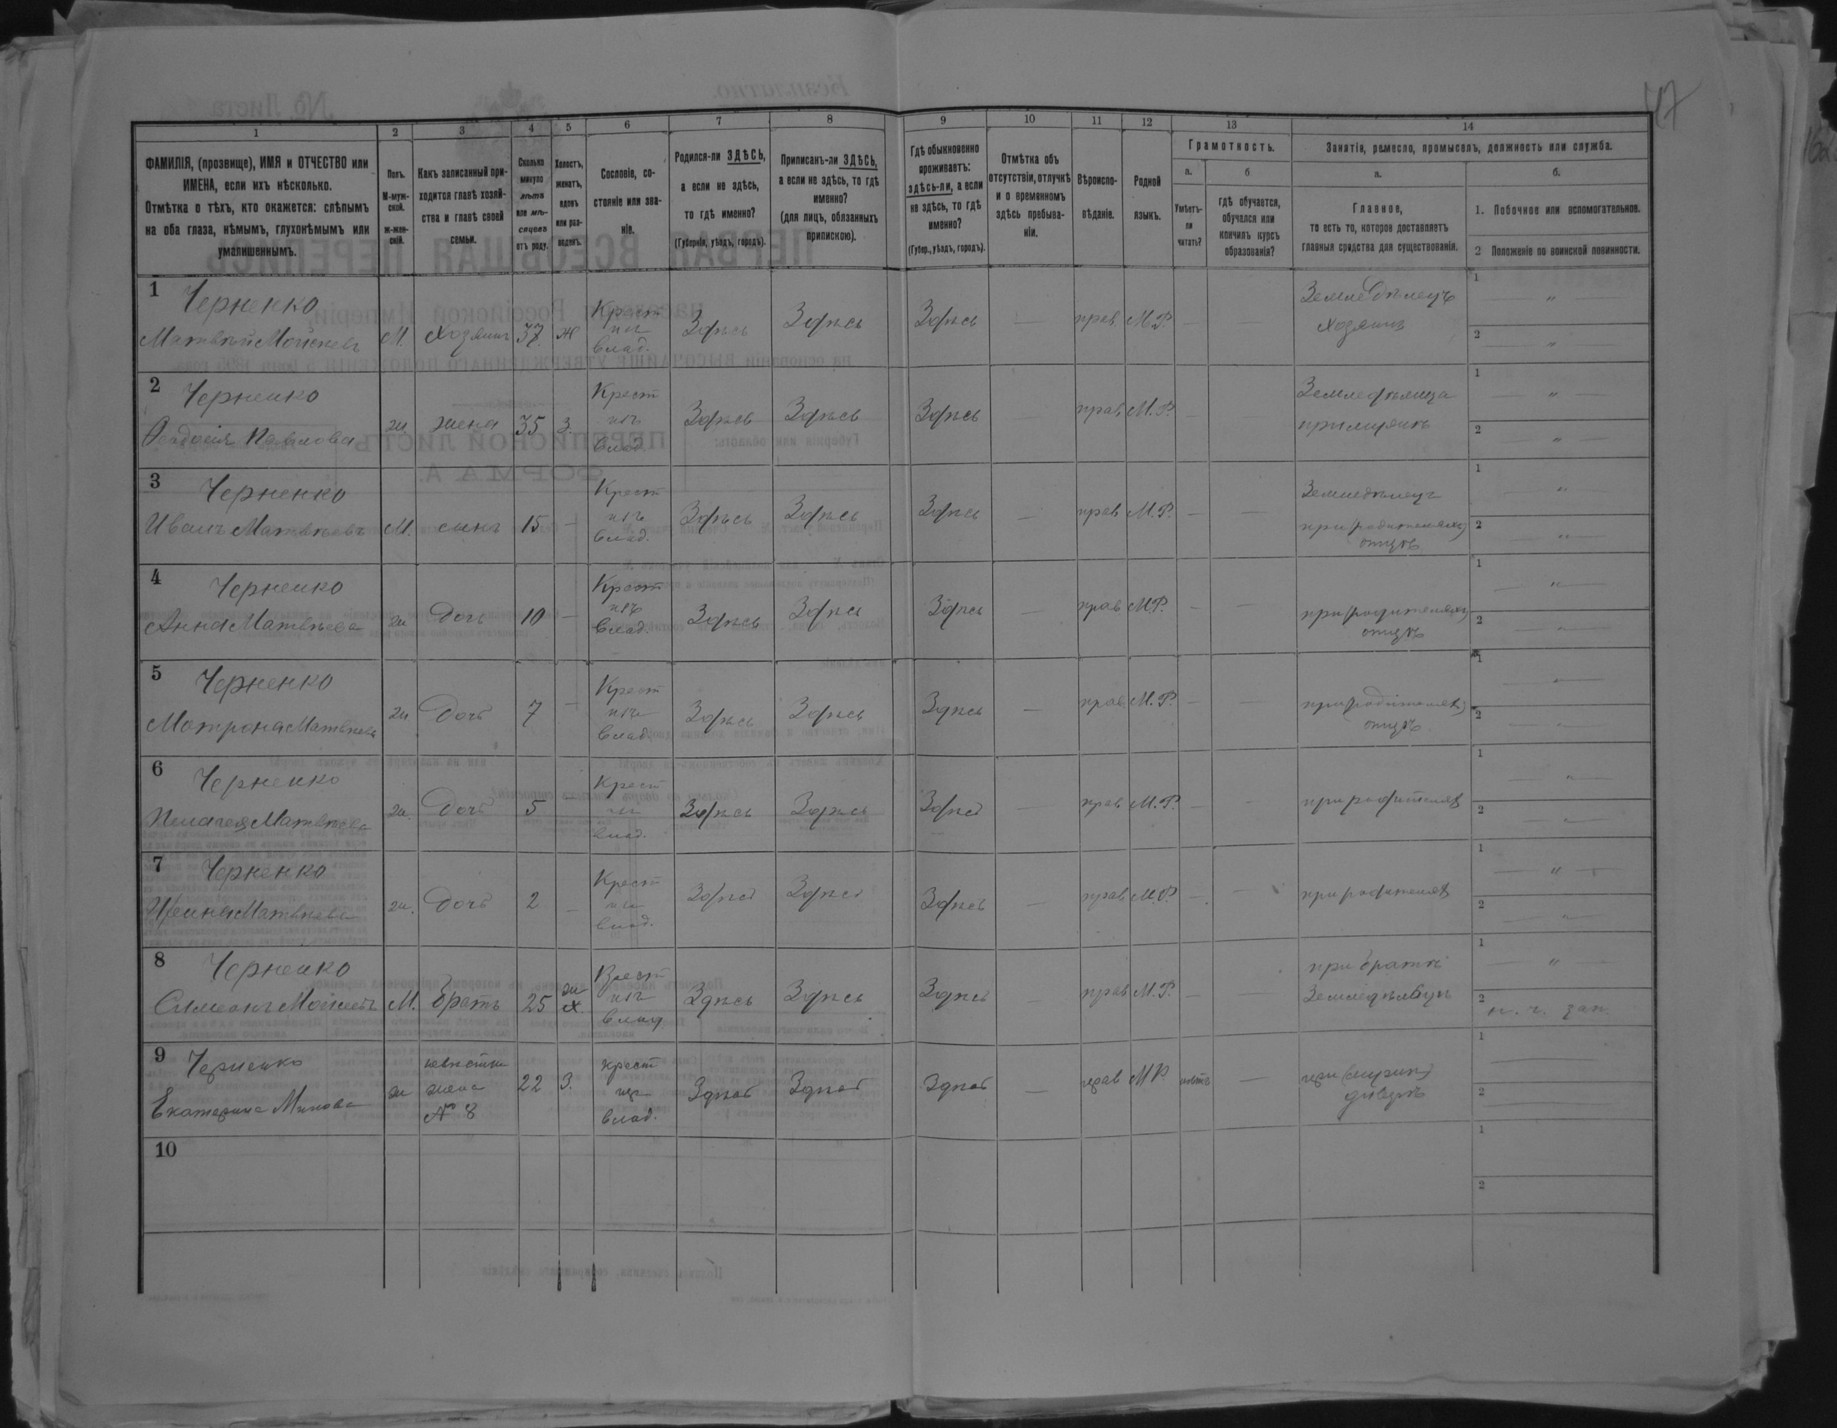 47
1 2 3 4 5 6 7 8 9 10 11 12 13 14
ФАМИЛІЯ, (прозвище), ИМЯ и ОТЧЕСТВО или ИМЕНА, если ихъ нѣсколько.
Отмѣтка о тѣхъ, кто окажется: слѣпымъ на оба глаза, нѣмымъ, глухонѣмымъ или умалишеннымъ.
Полъ. М-мужской. ж-женскій.
Какъ записанный приходится главѣ хозяйства и главѣ своей семьи.
Сколько минуло лѣтъ или мѣсяцевъ отъ роду.
Холостъ, женатъ, вдовъ или разведенъ.
Сословіе, состояніе или званіе.
Родился-ли ЗДѢСЬ, а если не здѣсь, то гдѣ именно? (Губернія, уѣздъ, городъ).
Приписанъ-ли ЗДѢСЬ, а если не здѣсь, то гдѣ именно? (для лицъ, обязанныхъ припискою).
Гдѣ обыкновенно проживаетъ: здѣсь-ли, а если не здѣсь, то гдѣ именно? (Губер., уѣздъ, городъ).
Отмѣтка объ отсутствіи, отлучкѣ и о временномъ здѣсь пребываніи.
Вѣроисповѣданіе.
Родной языкъ.
Грамотность.
а. Умѣетъ-ли читать?
б гдѣ обучается, обучался или кончилъ курсъ образованія?
Занятія, ремесло, промыселъ, должность или служба.
а. Главное, то есть то, которое доставляетъ главныя средства для существованія.
б. 1. Побочное или вспомогательное.
2 Положеніе по воинской повинности.
1 Черненко Матвѣй Моисеевъ М. Хозяинъ 37 ж Крест изъ влад. Здѣсь Здѣсь Здѣсь — прав М.Р. — — Земледѣлецъ хозяинъ 1 — " — 2 — " —
2 Черненко Феодосія Павлова ж жена 35 з. Крест изъ влад Здѣсь Здѣсь Здѣсь — прав М.Р. — — Земледѣлица при мужѣ 1 — " — 2 — " —
3 Черненко Иванъ Матвѣевъ М. сынъ 15 — Крест изъ влад. Здѣсь Здѣсь Здѣсь — прав М.Р. — — Земледѣлецъ при (родителяхъ) отцѣ 1 " 2 — " —
4 Черненко Анна Матвѣева ж дочь 10 — Крест изъ влад. Здѣсь Здѣсь Здѣсь — прав М.Р. — — при (родителяхъ) отцѣ 1 " 2 — " —
5 Черненко Матрона Матвѣева ж дочь 7 — Крест изъ влад Здѣсь Здѣсь Здѣсь — прав М.Р. — — при (родителях) отцѣ. 1 — " — 2 — " —
6 Черненко Пелагея Матвѣева ж. дочь 5 — Крест изъ влад. Здѣсь Здѣсь Здѣсь — прав М.Р. — — при родителях 1 — " — 2 — " —
7 Черненко Ирина Матвѣева ж. дочь 2 — Крест изъ влад. Здѣсь Здѣсь Здѣсь — прав М.Р. — — при родителях 1 — " — 2 — " —
8 Черненко Симеонъ Моисеевъ М. братъ 25 ж х. Крест изъ влад Здѣсь Здѣсь Здѣсь — прав М.Р. — — при братѣ Земледѣлецъ 1 — " — 2 зап.
9 Черненко Екатерина ж невѣстка жена № 8 22 з. крест изъ влад. Здѣсь Здѣсь Здѣсь — прав МР. нѣтъ — при 1 — 2 —
10 1 2